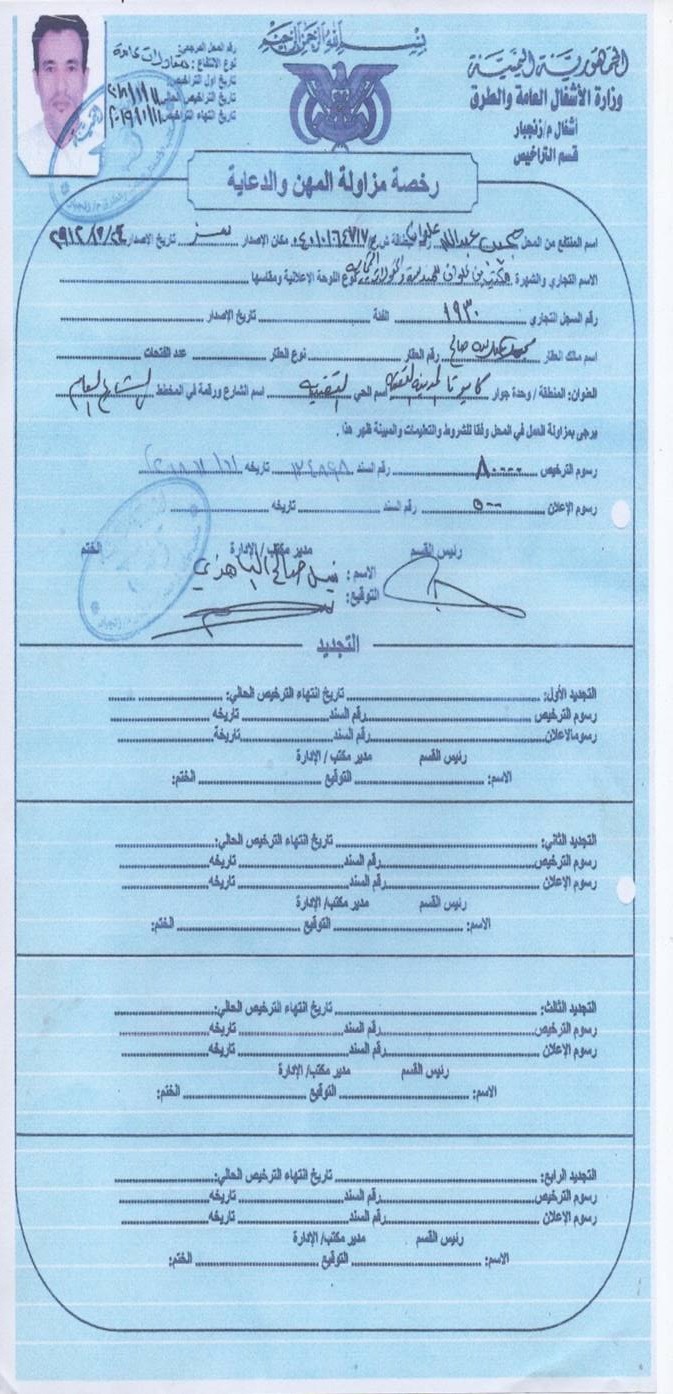 بسم الله الرحمن الرحيم
الجمهورية اليمنية
وزارة الأشغال العامة والطرق
أشغال م/زنجبار
قسم التراخيص
رقم المحل المرجعي:
نوع الانتفاع: مقاولات عامة
تاريخ اول التراخيص
تاريخ الترخيص الحالي
تاريخ انتهاء التراخيص
رخصة مزاولة المهن والدعاية
اسم المنتفع من المحل حسين عبدالله علوان رقم بطاقة ش مكان الإصدار تاريخ الاصدار
الاسم التجاري والشهرة نوع اللوحة الإعلانية ومقاسها
رقم السجل التجاري ١٩٣٠ الفئة تاريخ الإصدار
اسم مالك العقار رقم العقار نوع العقار عدد الفتحات
العنوان: المنطقة / وحدة جوار اسم الحي اسم الشارع ورقمة في المخطط الشارع العام
يرجى بمزاولة العمل في المحل وفقا للشروط والتعليمات والمبينة ظهر هذا .
رسوم الترخيص ٨٠٠٠٠ رقم السند تاريخه
رسوم الإعلان ٥٠٠ رقم السند تاريخه
رئيس القسم مدير مكتب/الإدارة الختم
الاسم : نبيل صالح
التوقيع:
التجديد
التجديد الأول: تاريخ انتهاء الترخيص الحالي:
رسوم الترخيص رقم السند تاريخه
رسومالاعلان رقم السند تاريخة
رئيس القسم مدير مكتب / الإدارة
الاسم: التوقيع الختم:
التجديد الثاني: تاريخ انتهاء الترخيص الحالي:
رسوم الترخيص رقم السند تاريخه
رسوم الإعلان رقم السند تاريخه
رئيس القسم مدير مكتب/ الإدارة
الاسم: التوقيع الختم:
التجديد الثالث: تاريخ انتهاء الترخيص الحالي:
رسوم الترخيص رقم السند تاريخه
رسوم الإعلان رقم السند تاريخه
رئيس القسم مدير مكتب/ الإدارة
الاسم: التوقيع الختم:
التجديد الرابع: تاريخ انتهاء الترخيص الحالي:
رسوم الترخيص رقم السند تاريخه
رسوم الإعلان رقم السند تاريخه
رئيس القسم مدير مكتب/ الإدارة
الاسم: التوقيع الختم: